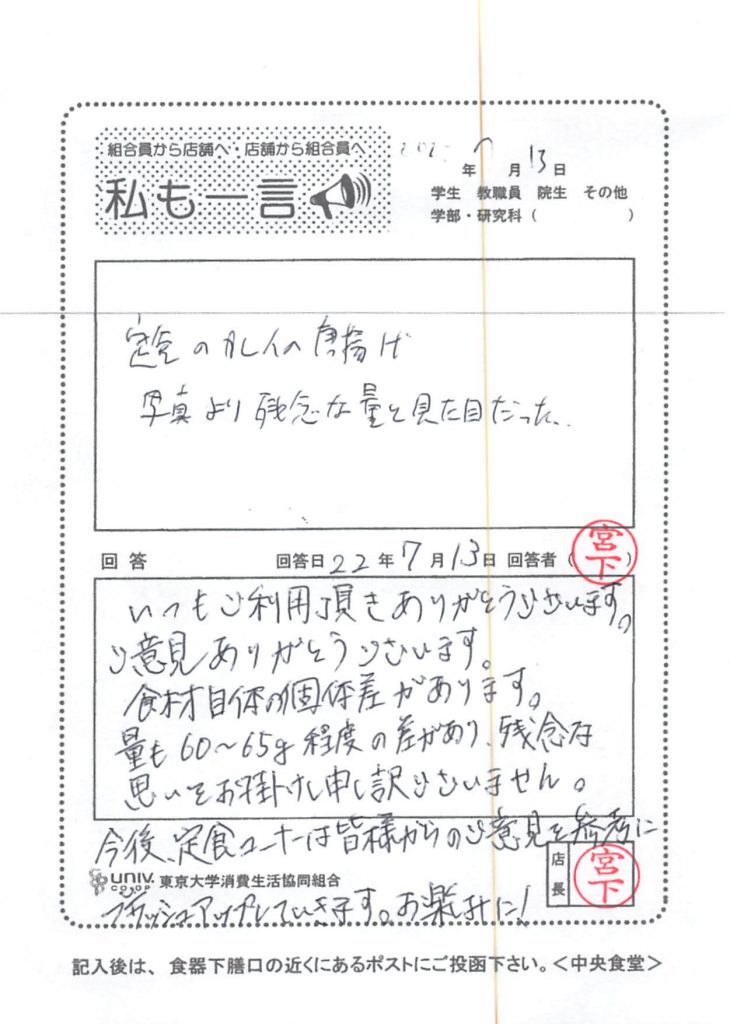 組合員から店舗へ・店舗から組合員へ
私も一言
年 7 月 13 日
学生 教職員 院生 その他
学部・研究科 ( )
定食のカレイの唐揚げ
写真より残念な量と見た目だった..
回答 回答日 22 年 7 月 13 日 回答者 ( 宮下 )
いつもご利用頂きありがとうございます。
ご意見ありがとうございます。
食材自体の個体差があります。
量も60～65g程度の差があり、残念な
思いをお掛けし申し訳ございません。
今後、定食コーナーは皆様からのご意見を参考に
UNIV. CO-OP 東京大学消費生活協同組合 店長 宮下
ブラッシュアップしていきます。お楽しみに!
記入後は、食器下膳口の近くにあるポストにご投函下さい。＜中央食堂＞